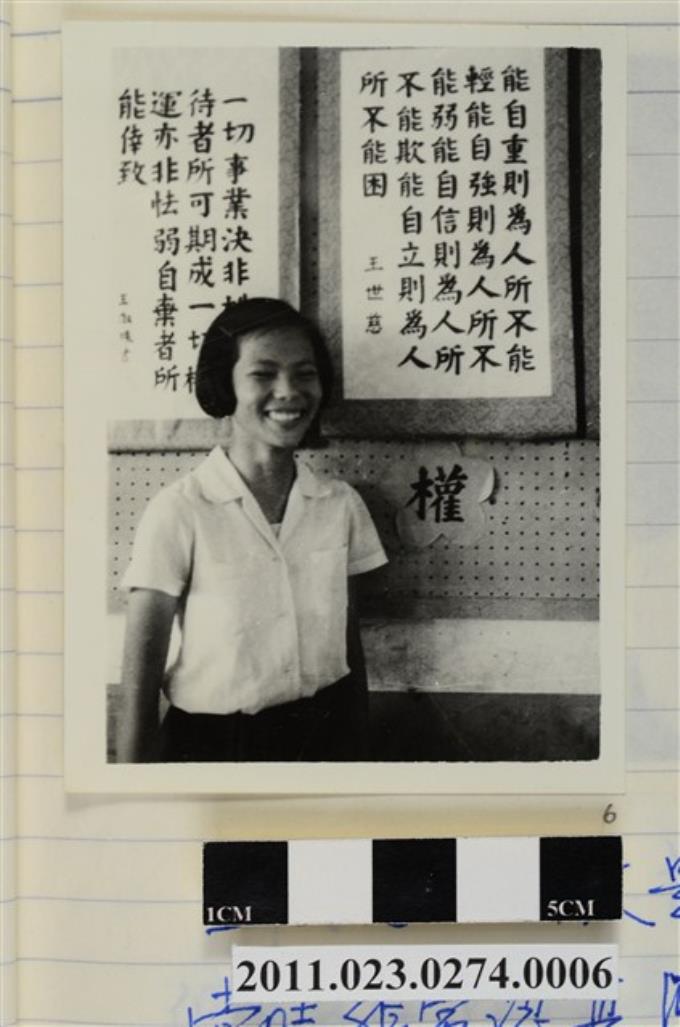 能自重則為人所不能
輕能自強則為人所不
能弱能自信則為人所
不能欺能自立則為人
所不能困
王世慈
一切事業決非
待者所可期成一切
運亦非怯弱自棄者所
能倖致
權
6
1CM 5CM
2011.023.0274.0006